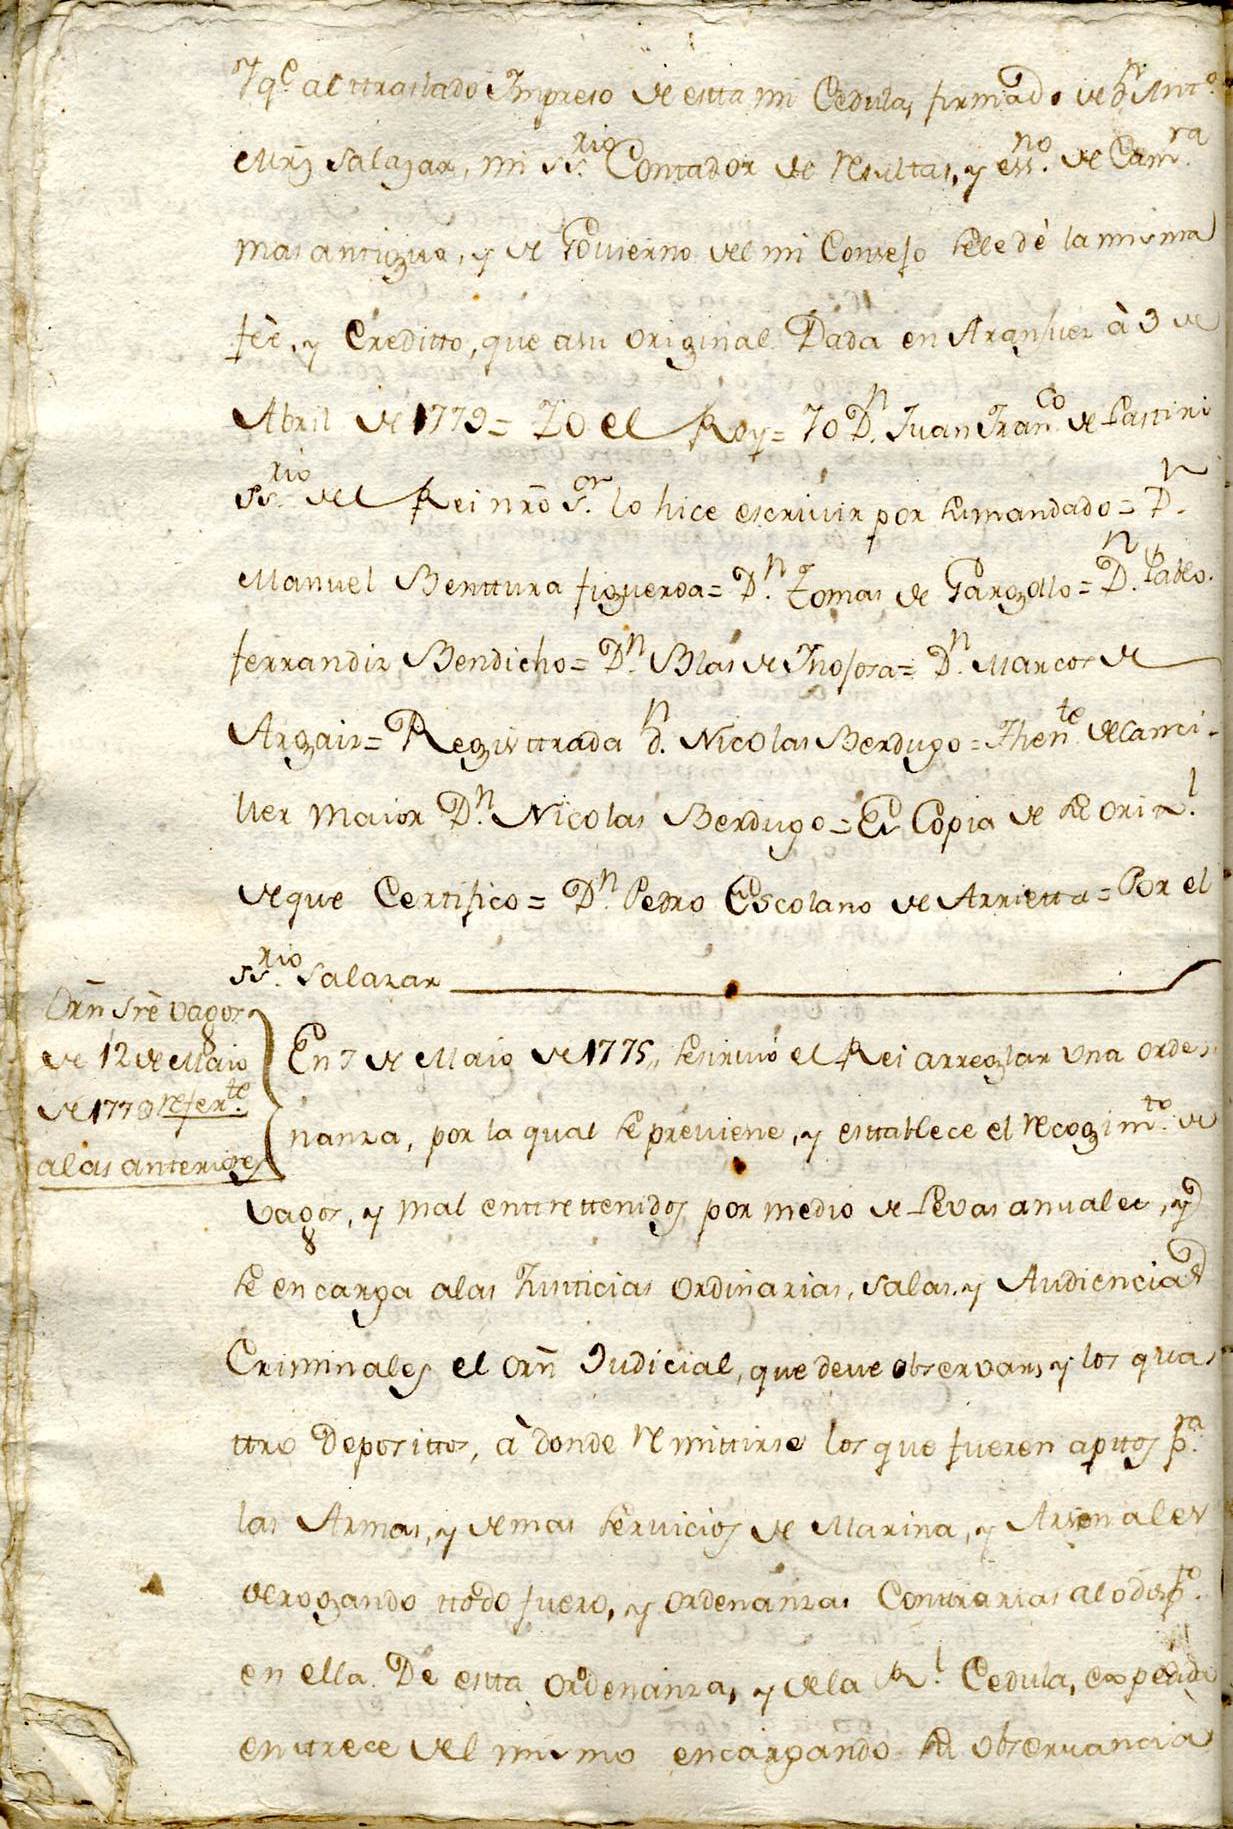 Y q.e al ttraslado Impreso de estta mi Cedula, firmado de D.n Ant.o
Mrñz Salazar, mi ss.rio Contador de resultas, y ess.no de Cam.ra
mas antiguo, y de Govierno del mi Consejo sele dè la misma
feè, y Creditto, que asu original. Dada en Aranjuez à 3 de
Abril de 1779 = Yo el Rey = Yo D.n Juan Fran.co de Lastiri
ss.rio del Rei nrõ s.or lo hice escrivir por su mandado = D.n
Manuel Benttura figueroa = D.n Tomas de Gargollo = D.n Pablo
ferrandiz Bendicho = D.n Blas de Inojosa = D.n Marcos de
Argaiz = Registtrada D.n Nicolas Berdugo = Then.te de canci-
ller maior D.n Nicolas Berdugo = Es Copia de su orig.l
de que Certifico = D.n Pedro Escolano de Arrietta = Por el
ss.rio Salazar
Orñ srẽ vagos
de 12 de Maio
de 1779 refer.te
alas anteriores
En 7 de Maio de 1775,, se sirvió el Rei arreglar una orde-
nanza, por la qual se previene, y esttablece el recogim.to de
vagos, y mal enttrettenidos por medio de Levas anuales, y
se encarga alas Justicias ordinarias, Salas, y Audiencias
Criminales el orñ Judicial, que deve observarse y los qua-
ttro Deposittos, à donde remittirse los que fueren apttos p.ra
las Armas, y demas servicios de Marina, y Arsenales
derogando ttodo fuero, y ordenanzas Conttrarias alo disp.to
en ella. De estta ordenanza, y dela R.l Cedula, expedida
en ttrece del mismo encargando su observancia